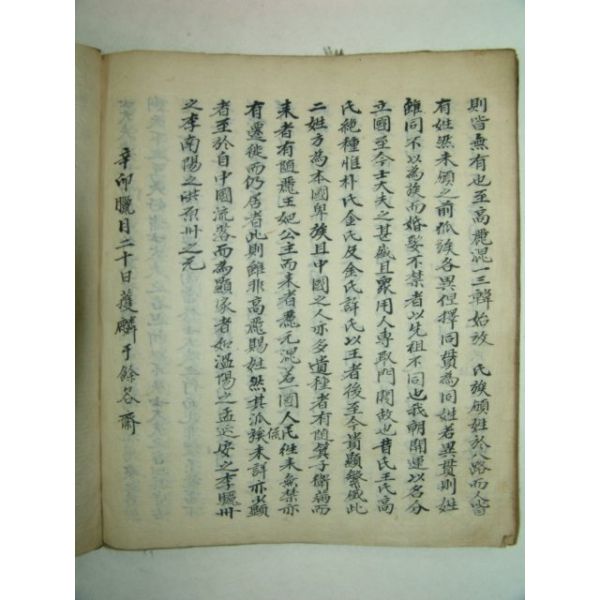 則皆無有也至高麗混一三韓始放 氏族頒姓於八路而人皆
有姓然未頒之前派族各異但擇同貫為同姓若異貫則姓
雖同不以為族而婚娶不禁者以先祖不同也我朝開運以名分
立國至今士大夫之甚盛且衆用人專取門閥故也昔氏王氏高
氏絶種惟朴氏金氏及金氏許氏以王者後至今貴顯繁盛此
二姓方為本國卑族且中國之人亦多遺種者有随箕子衛滿而
来者有随麗王妃公主而来者麗元混若一國人民往来無禁亦
有遷徙而仍居者此則雖非高麗賜姓然其派族未詳亦顯
者至於自中國流落而為顯族者如溫陽之孟延安之李驪州
之李南陽之洪原州之元
辛卯臘月二十日獲麟于餘名齋